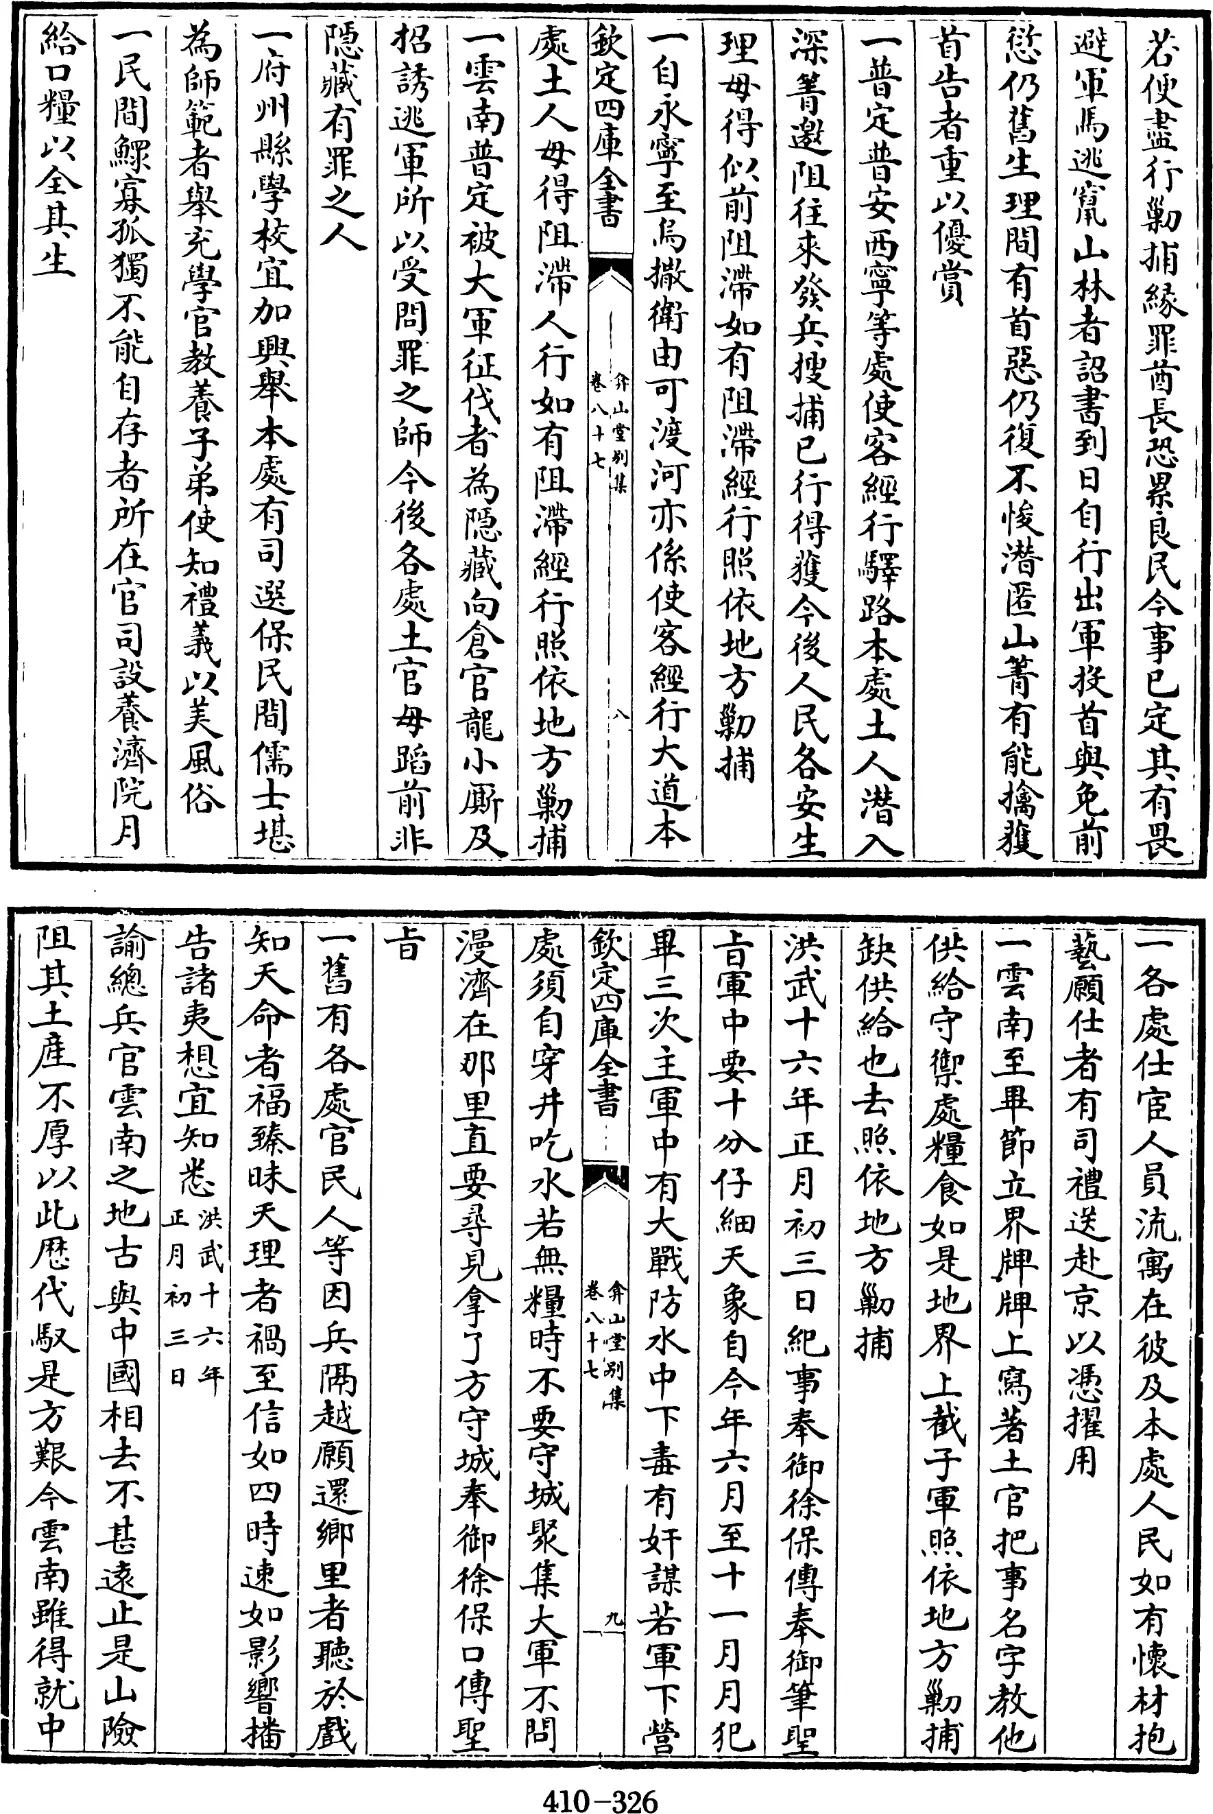 若便盡行勦捕緣罪酋長恐累良民今事已定其有畏
避軍馬逃竄山林者詔書到日自行出軍投首與免前
愆仍舊生理間有首惡仍復不悛潛匿山箐有能擒獲
首告者重以優賞
一普定普安西寧等處使客經行驛路本處土人潛入
深箐邀阻往來發兵搜捕已行得獲今後人民各安生
理毋得似前阻滯如有阻滯經行照依地方勦捕
一自永寧至烏撒衛由可渡河亦係使客經行大道本
欽定四庫全書
弇山堂别集
卷八十七
八
處土人毋得阻滯人行如有阻滯經行照依地方勦捕
一雲南普定被大軍征伐者為隱藏向倉官龍小厮及
招誘逃軍所以受問罪之師今後各處土官毋蹈前非
隱藏有罪之人
一府州縣學校宜加興舉本處有司選保民間儒士堪
為師範者舉充學官教養子弟使知禮義以美風俗
一民間鰥寡孤獨不能自存者所在官司設養濟院月
給口糧以全其生
一各處仕宦人員流寓在彼及本處人民如有懷材抱
藝願仕者有司禮送赴京以憑擢用
一雲南至畢節立界牌牌上寫著土官把事名字教他
供給守禦處糧食如是地界上截子軍照依地方勦捕
缺供給也去照依地方勦捕
洪武十六年正月初三日紀事奉御徐保傳奉御筆聖
旨軍中要十分仔細天象自今年六月至十一月月犯
畢三次主軍中有大戰防水中下毒有奸謀若軍下營
欽定四庫全書
弇山堂别集
卷八十七
九
處須自穿井吃水若無糧時不要守城聚集大軍不問
漫濟在那里直要尋見拿了方守城奉御徐保口傳聖
旨
一舊有各處官民人等因兵隔越願還鄉里者聽於戲
知天命者福臻昧天理者禍至信如四時速如影響播
告諸夷想宜知悉洪武十六年
正月初三日
諭總兵官雲南之地古與中國相去不甚遠止是山險
阻其土産不厚以此歷代馭是方艱今雲南雖得就中
410-326